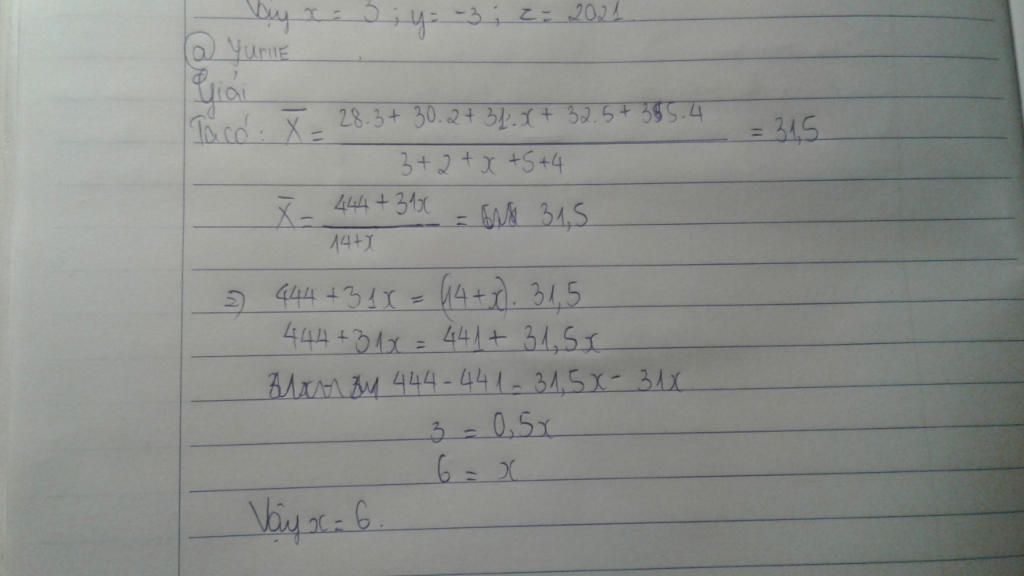 Vậy x = 3 ; y = -3 ; z = 2021
a YUMIE
Giải
Ta có: X̅ = (28.3 + 30.2 + 31.x + 32.5 + 35.4) / (3 + 2 + x + 5 + 4) = 31,5
X̅ = (444 + 31x) / (14+x) = 31,5
=) 444 + 31x = (14+x). 31,5
444 + 31x = 441 + 31,5x
444 - 441 = 31,5x - 31x
3 = 0,5x
6 = x
Vậy x = 6.